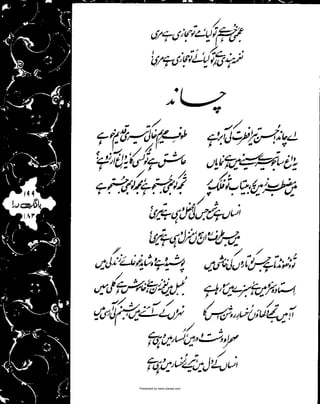 عجمی خم ہے تو کیا، مے تو حجازی ہے مری
نغمہ ہندی ہے تو کیا، لے تو حجازی ہے مری!
چاند
اے چاند! حسن تیرا فطرت کی آبرو ہے
طوفِ حریمِ خاکی تیری قدیم خو ہے
یہ داغ سا جو تیرے سینے میں ہے نمایاں
عاشق ہے تو کسی کا؟ یہ داغِ آرزو ہے؟
میں مضطرب زمیں پر، بیتاب تو فلک پر
تجھ کو بھی جستجو ہے، مجھ کو بھی جستجو ہے
انساں ہے شمع جس کی، محفل وہی ہے تیری؟
میں جس طرف رواں ہوں منزل وہی ہے تیری؟
تو ڈھونڈتا ہے جس کو تاروں کی خامشی میں
پوشیدہ ہے وہ شاید غوغائے زندگی میں
استادہ سرو میں ہے، سبزے میں سو رہا ہے
بلبل میں نغمہ زن ہے، خاموش ہے کلی میں
آ! میں تجھے دکھاؤں رخسارِ روشن اس کا
نہروں کے آئنے میں، شبنم کی آرسی میں
صحرا و دشت و در میں، کہسار میں وہی ہے
انساں کے دل میں، تیرے رخسار میں وہی ہے
۱۹۹
بانگِ درا
۱۸۳
Presented by www.ziaraat.com